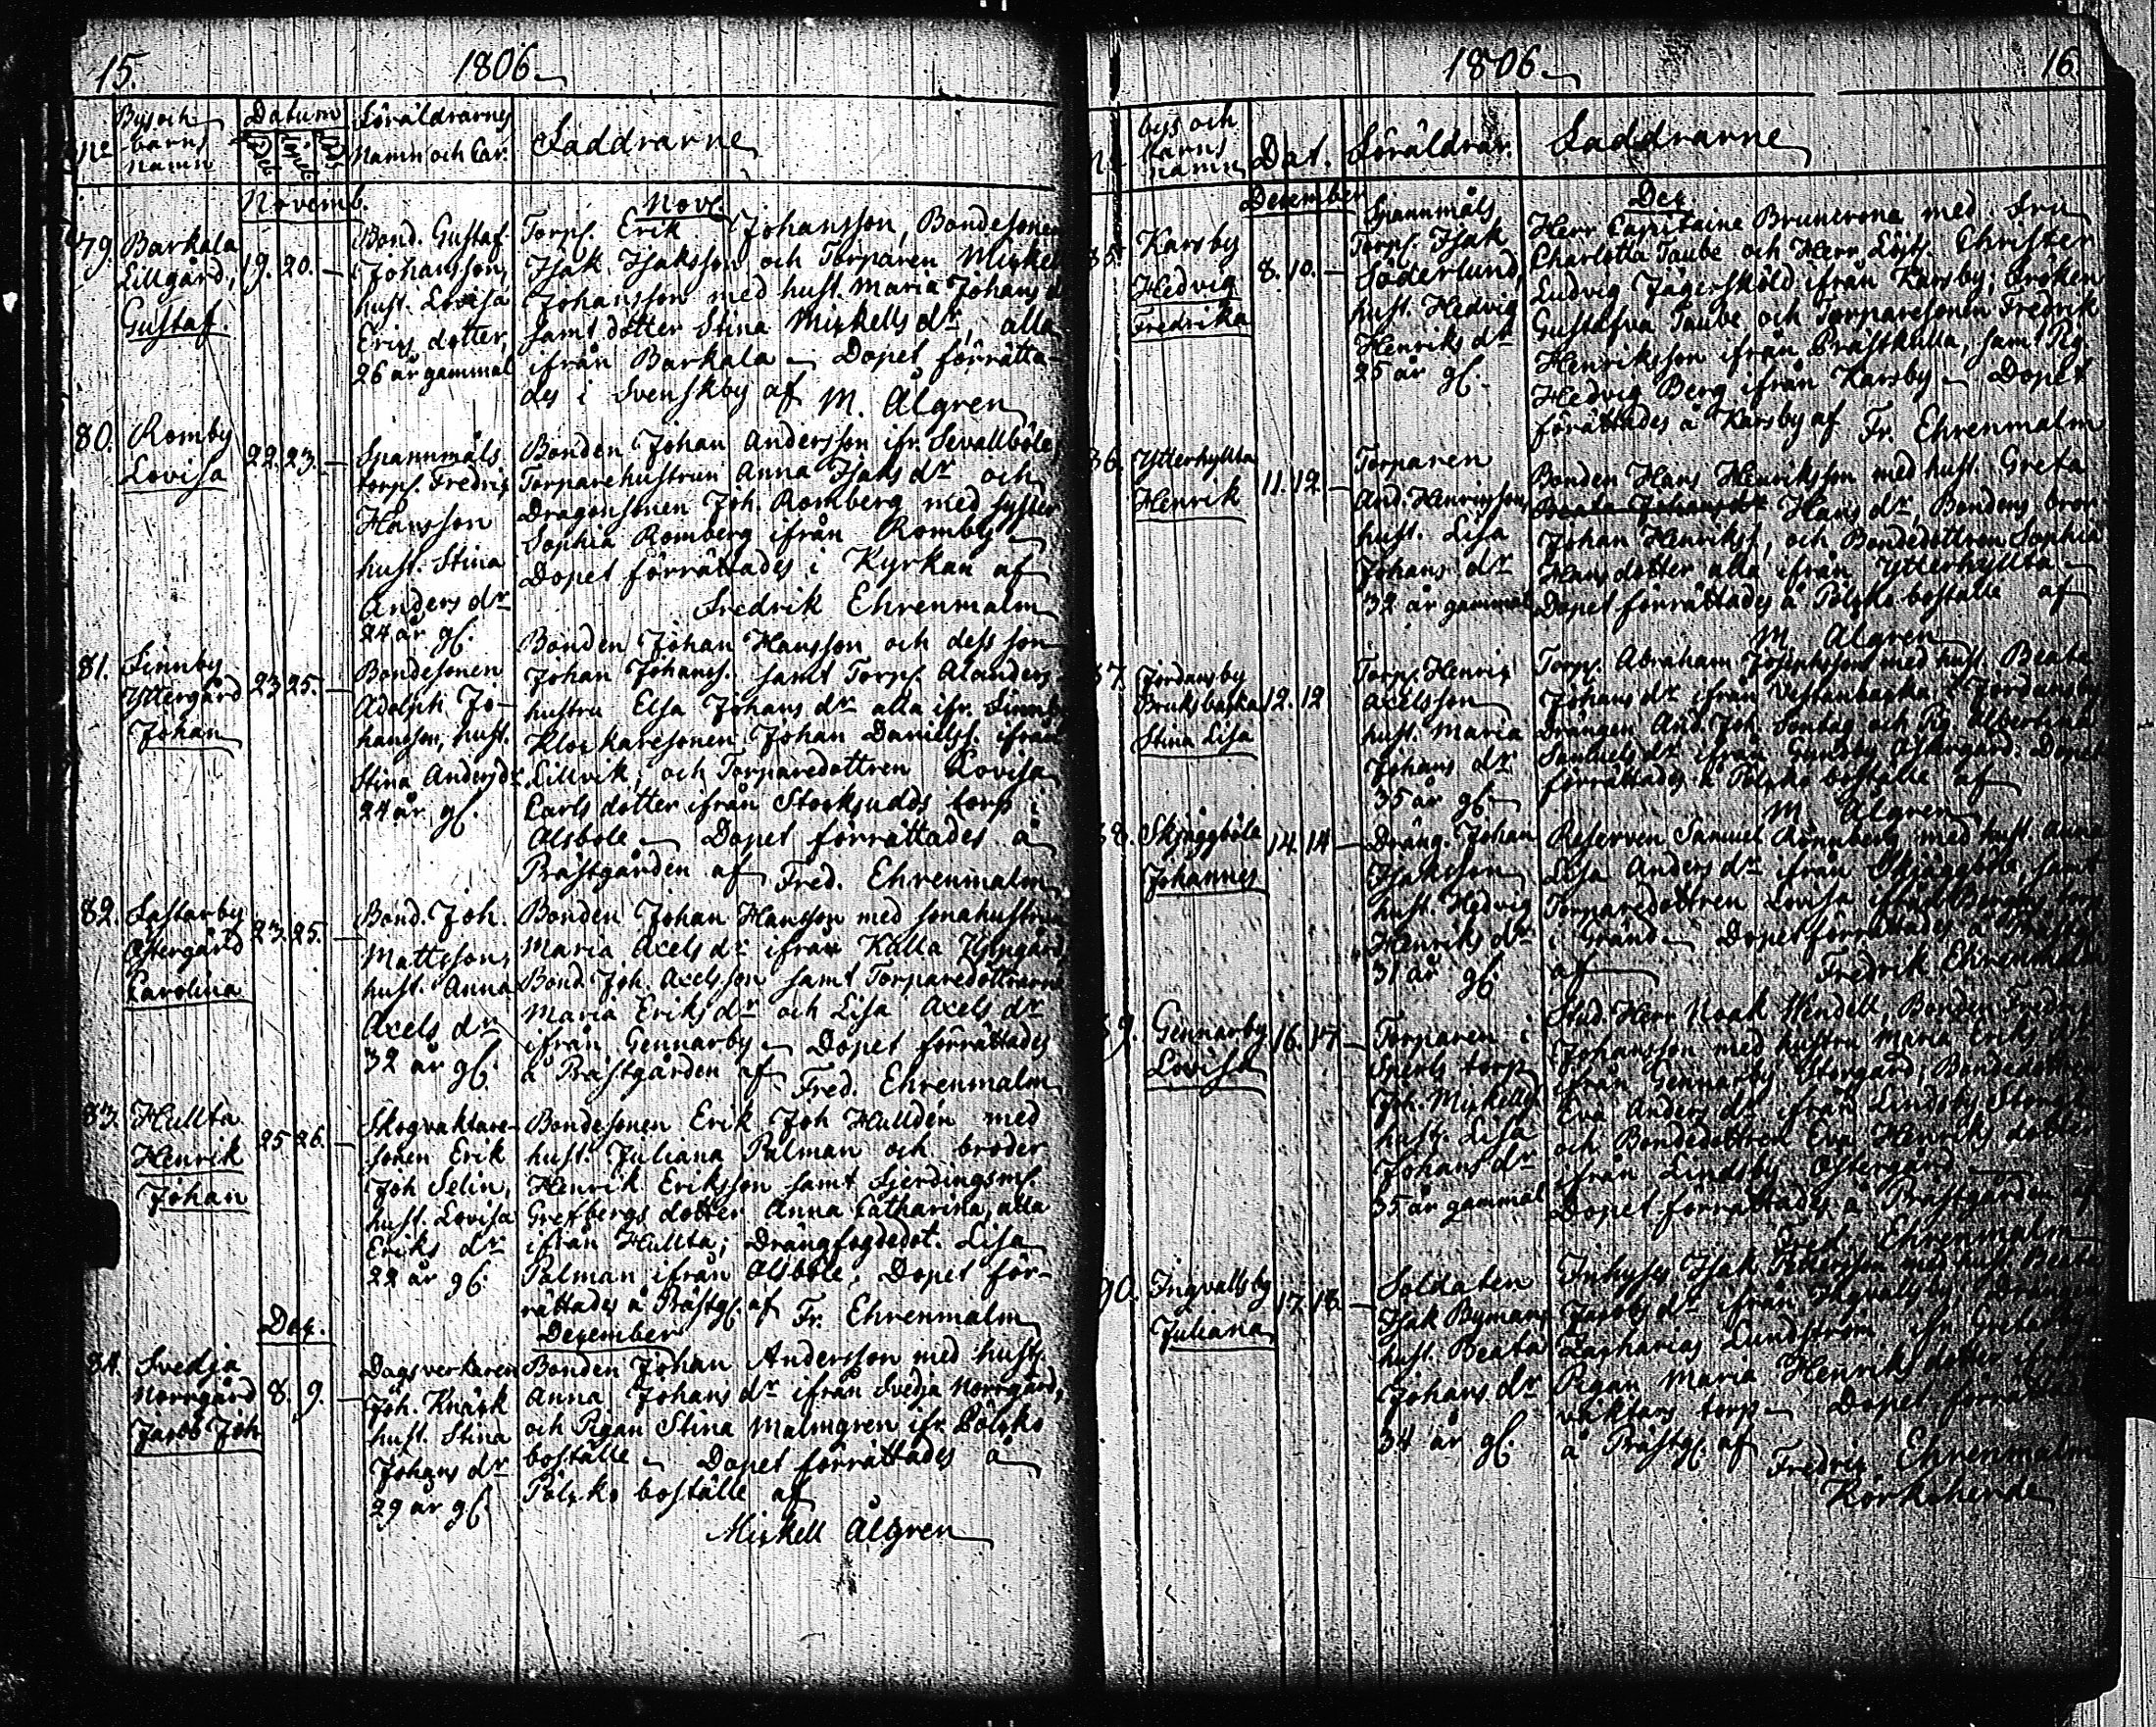 15. 1806
Byoch barns namn Datum Föräldrarnes Namn och Car. Faddrarne
Novemb. Nov.
79. Barkala Lillgård, Gustaf. 19. 20. —
Bond. Gustaf
Johansson,
hust. Lovisa
Erics dotter,
26 år gammal
Torp. Erik Johansson, Bondesonen
Isak Isaksson och Torparen Mickel
Johansson med hust. Maria Johans d
samt dotter Stina Mickells dr, alla
ifrån Barkala — Dopet förrätta-
des i Svenskby af M. Ålgren
80. Romby Lovisa 22. 23. —
Spannmåls
torp. Fredric
Hansson
hust. Stina
Anders dr
24 år gl.
Bonden Johan Andersson ifr. Sevallböle,
Torparehustrun Anna Isaks dr och
Dragonsonen Joh. Romberg med syster
Sophia Romberg ifrån Romby —
Dopet förrättades i Kyrkan af
Fredrik Ehrenmalm
81. Finnby Yttergård Johan 23 25. —
Bondesonen
Adolph Jo-
hansson, hust.
Stina Anders dr
24 år gl.
Bonden Johan Hansson och dess son
Johan Johanss. samt Torp. Alanders
hustru Elsa Johans dr alla ifr. Finnby
Klockaresonen Johan Danielss. ifrån
Lillvik, och Torparedottren Lovisa
Carls dotter ifrån Stocksudds torp i
Alsböle — Dopet förrättades å
Prästgården af Fred. Ehrenmalm
82. Lastarby Östergård Carolina 23. 25. —
Bond. Joh.
Mattsson,
hust. Anna
Axels dr
32 år gl.
Bonden Johan Hansson med sonahustrun
Maria Axels dr ifrån Källa
Bond. Joh. Axelsson samt Torparedöttrarne
Maria Eriks dr och Lisa Axels dr
ifrån Gennarby — Dopet förrättades
å Prästgården af Fred. Ehrenmalm
83. Hullta Henrik Johan 25 26. —
Skogvaktare-
sonen Erik
Joh Selin,
hust. Lovisa
Eriks dr
22 år gl.
Bondesonen Erik Joh Hulldén med
hust. Juliana Palman och broder
Henrik Eriksson samt Fjerdingsm.
Grefbergs dotter Anna Catharina, alla
ifrån Hullta; Drängfogdedot. Lisa
Palman ifrån Alsböle. Dopet för-
rättades å Prästg. af Fr. Ehrenmalm
Dec. December
84. Svedja Norrgård Jacob Joh 8. 9. —
Dagsverkaren
Joh. Knärk
hust. Stina
Johans dr
29 år gl.
Bonden Johan Andersson med hust.
Anna Johans dr ifrån Svedja Norrgård,
och Pigan Stina Malmgren ifr. Pölcko
boställe — Dopet förrättades å
Pölcko boställe af
Mickell Ålgren
1806 16.
bys och barns namn Dat. Föräldrar. Faddrarne
December Dec.
85. Karsby Hedvig Fredrika 8. 10. —
Spannmåls
Torp. Isak
Söderlund,
hust. Hedvig
Henriks dr
25 år gl.
Herr Capitaine Bruncrona med Fru
Charlotta Taube och Herr Löjts. Christer
Ludvig Jägerskölld ifrån Karsby, Fröken
Gustafva Taube och Torparesonen Fredrik
Henriksson ifrån Prästkulla, samt Pig.
Hedvig Berg ifrån Karsby — Dopet
förättades å Karsby af Fr. Ehrenmalm
86. Ytterhyllta Henrik 11. 12 —
Torparen
And. Henricsson
hust. Lisa
Johans dr
32 år gammal
Bonden Hans Henriksson med hust. Greta
Beata Johans dr Hans dr, Bondens bror
Johan Henrikss, och Bondedottren Sophia
Hans dotter alla ifrån Ytterhyllta —
Dopet förrättades å Pölcko boställe af
M Ålgren
87. Jordansby Bruksbacka Stina Lisa 12. 12
Torp. Henric
Axelsson
hust. Maria
Johans dr
35 år gl.
Torp. Abraham Josephsson med hust. Beata
Johans dr ifrån Vestanbacka i Jordansby
Drängen And. Joh. Sontag och Pig. Albertina
Samuels dr ifrån Östergård. Dopet
förrättades å Pölcko boställe af
M Ålgren
88. Skjäggböle Johannes 14. 14 —
Dräng. Johan
Isaksson
hust. Hedvig
Henriks dr
31 år gl.
Reserven Samuel Rönnberg med hust. Anna
Lisa Anders dr ifrån Skjäggböle, samt
Torparedottren Lovisa ifrån torp
i Gränd — Dopet förrättades å Prästg.
af Fredrik Ehrenmalm
89. Gennarby Lovisa 16. 17 —
Torparen i
Sperls torp
Joh. Mickells
hust. Lisa
Johans dr
35 år gammal
Stud. Herr Noak Wendell, Bonden Fredric
Johansson med hustru Maria Eriks dr
ifrån Gennarby Storgård; Bondedottren
Eva Anders dr ifrån Lindsby Storg.
och Bondedottren Eva Henriks dotter
ifrån Lindsby Östergård —
Dopet förrättades å Prästgården af
Fred. Ehrenmalm
90. Ingvallsby Juliana 17. 18. —
Soldaten
Isak Byman,
hust. Beata
Johans dr
34 år gl.
Inhyses Isak Pettersson med hust. Beata
Jacobs dr ifrån Ingvallsby, Drängen
Zacharias Lundström ifr. Gretarby
Pigan Maria Henriks dotter ifrån
väktars torp — Dopet förrättades
å Prästg. af Fredric Ehrenmalm
Körkoherde